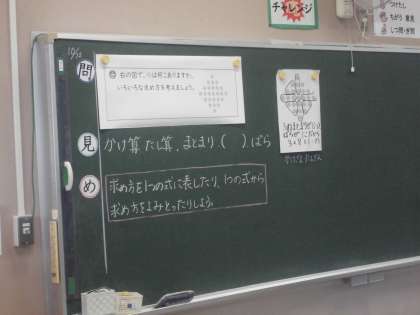 チャレンジ
つけたし
ちがう意見
しつ問・ぎ問
問
右の図で、○は何こありますか。
いろいろな求め方を考えましょう。
見
かけ算、たし算、まとまり( )ばら
め
求め方を1つの式に表したり、1つの式から
求め方をよみとったりしよう。